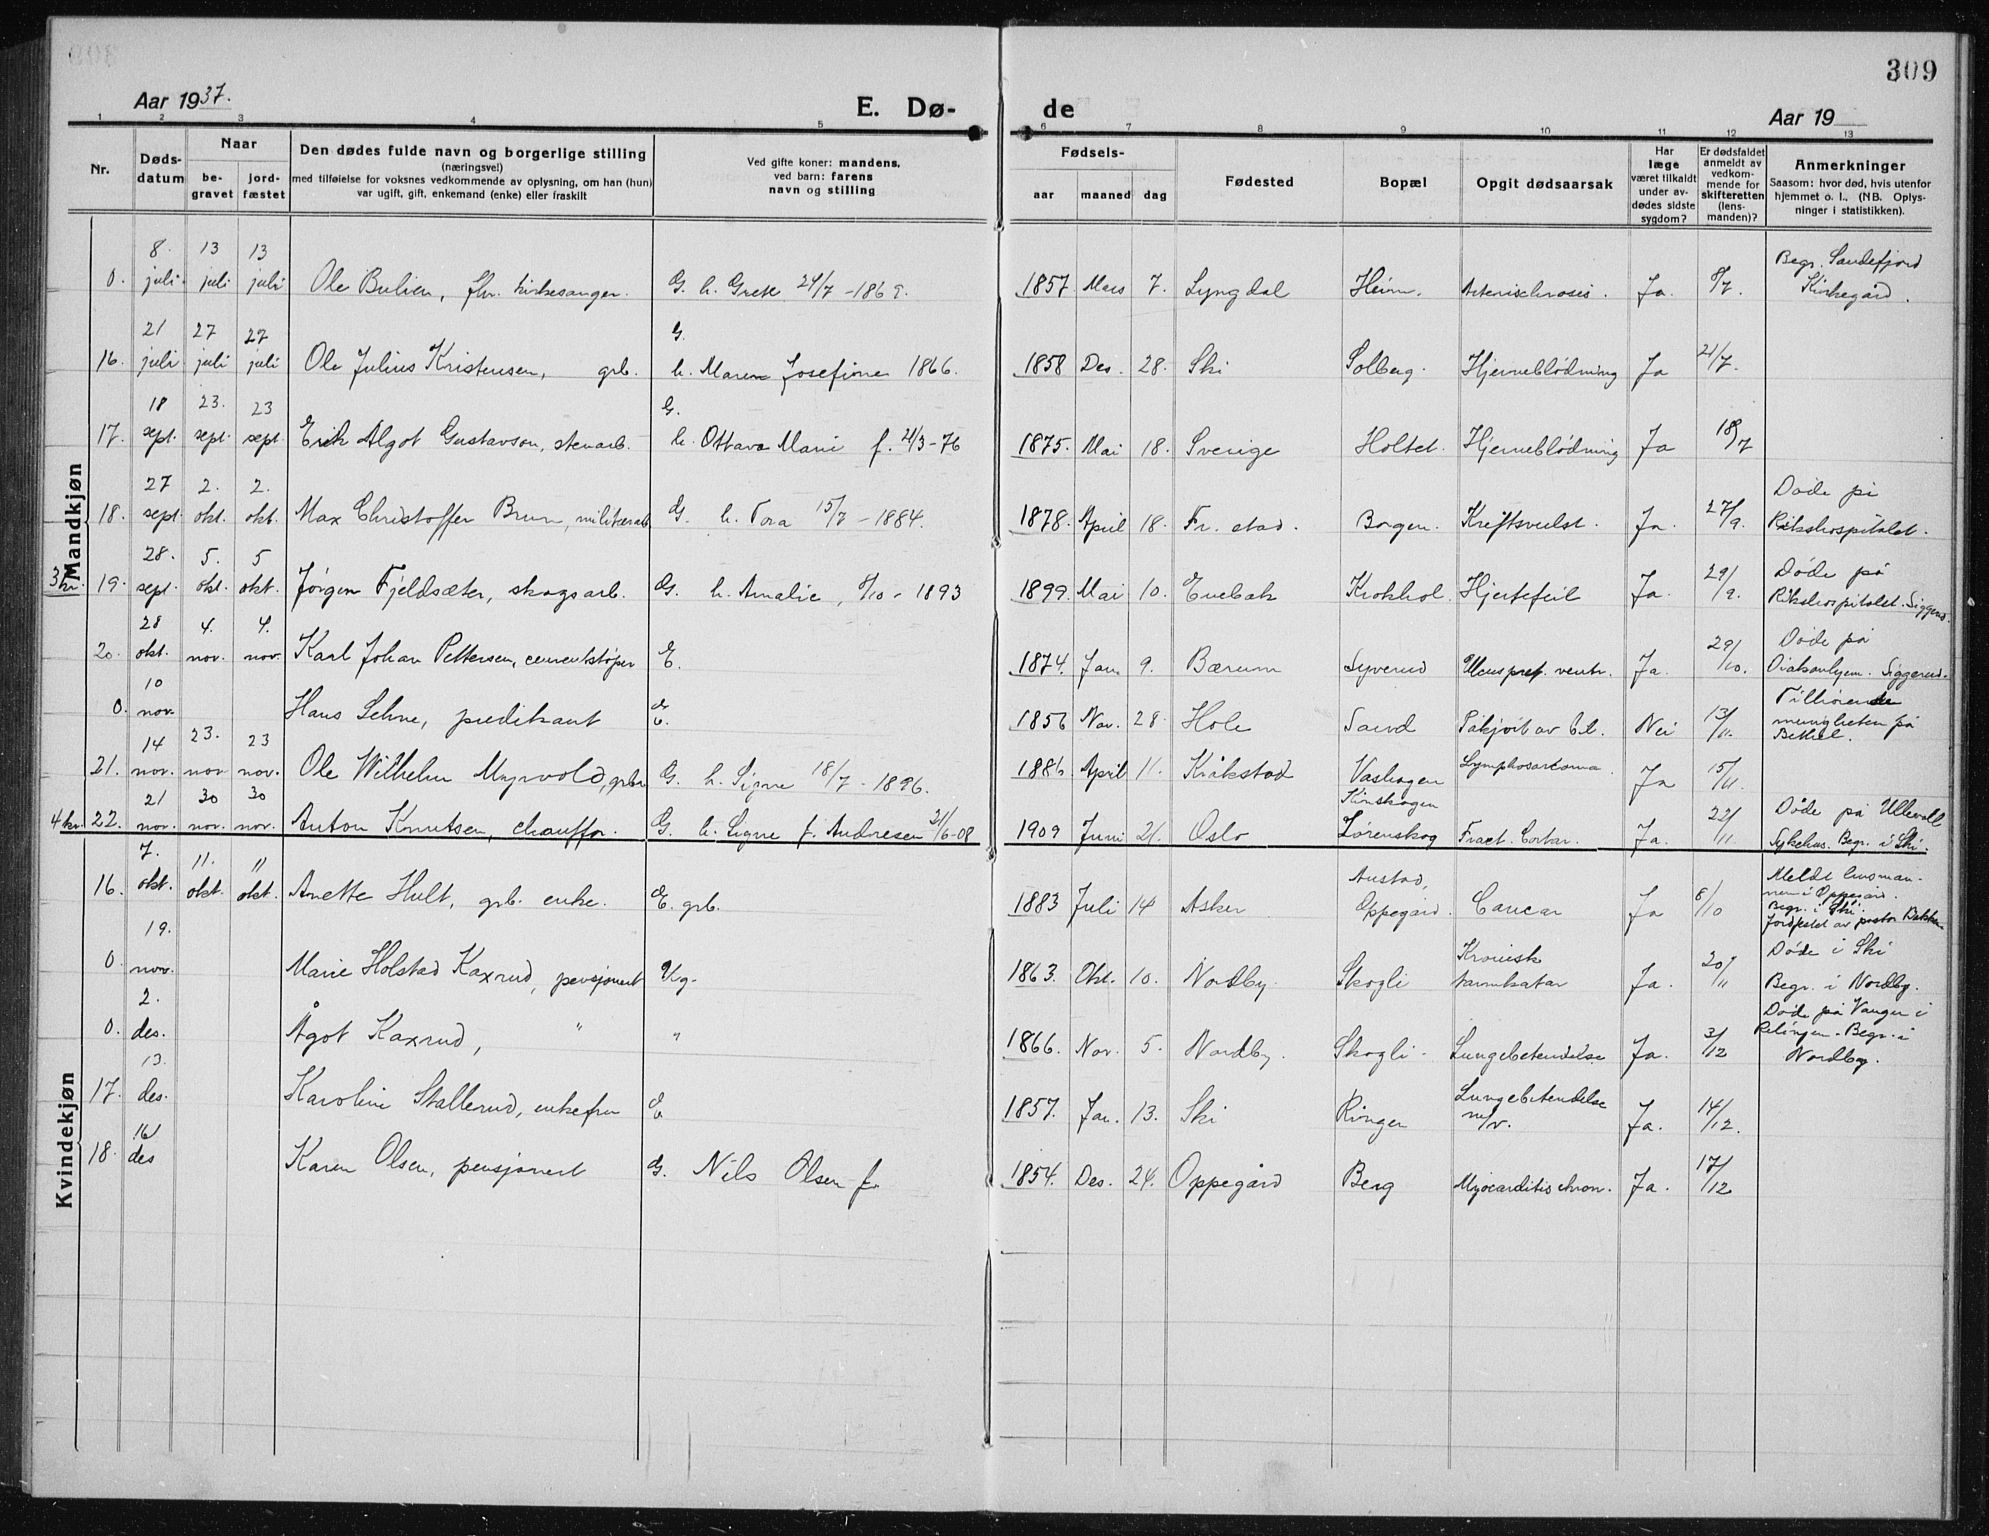 309
Aar 1937.
E. Dø-
de
Aar 19
1 2 3 4 5 6 7 8 9 10 11 12 13
Nr.
Døds-
datum
Naar
be-
gravet
jord-
fæstet
Den dødes fulde navn og borgerlige stilling
(næringsvei)
med tilføielse for voksnes vedkommende av oplysning, om han (hun)
var ugift, gift, enkemand (enke) eller fraskilt
Ved gifte koner: mandens,
ved barn: farens
navn og stilling
Fødsels-
aar maaned dag
Fødested
Bopæl
Opgit dødsaarsak
Har
læge
været tilkaldt
under av-
dødes sidste
sygdom?
Er dødsfaldet
anmeldt av
vedkom-
mende for
skifteretten
(lens-
manden)?
Anmerkninger
Saasom: hvor død, hvis utenfor
hjemmet o. l., (NB. Oplys-
ninger i statistikken).
Mandkjøn
0. 8. juli. 13 juli 13 juli Ole Bulien, fhv. kirkesanger. G. h. Grete 24/7 - 1869. 1857. Mars 7. Lyngdal Heim. Ja. 8/7. Begr. Sandefjord
Kirkegård.
16. 21 juli 27 juli 27 juli Ole Julius Kristensen, grb. G.
h. Maren Josefine 1866. 1858 Des. 28. Ski Solberg. Hjerneblødning Ja 21/7.
17. 18 sept. 23. sept. 23 sept. Erik Algot Gustavson, stenarb. G.
h. Ottava Marie f. 21/3-76 1875. Mai 18. Sverige Holtet. Hjerneblødning Ja 18/7
18. 27 sept. 2. okt. 2. okt. Max Christoffer Brun, militærarb. G. h. Tora 15/7 - 1884. 1878. April 18. Fr. stad. Borgen. Kreftsvulst. Ja. 27/9. Døde på
Rikshospitalet.
3 kr. 19. 28. sept. 5. okt. 5 okt. Jørgen Fjeldsæter, skogsarb. G. h. Amalie, 8/10 - 1893 1899. Mai 10. Enebak Krokhol. Hjertefeil Ja. 29/9. Døde på
Rikshospitalet. Siggerud.
20. 28 okt. 4. nov. 4. nov. Karl Johan Pettersen, cementstøper E. 1874. Jan. 9. Bærum Syverud Ulcus perf. ventr. Ja. 29/10. Døde på
Diakonhjem. Siggerud.
0. 10 nov. Hans Sehne, predikant E. 1856 Nov. 28. Hole Sand Påkjørt av bil. Nei 13/11. Tilhørende
menigheten på
Bethel.
21. 14 nov. 23. nov 23 nov. Ole Wilhelm Myrvold, grbr. G. h. Signe 18/7 - 1896. 1886 April 11. Kråkstad Vashagen
Kinskogen Lymphosarcoma. Ja 15/11.
4 kr. 22. 21 nov. 30 nov. 30 nov. Anton Knutsen, chauffør. G. h. Signe f. Andresen 21/6-08 1909 Juni 21. Oslo Lørenskog Fract. Ja. 22/11 Døde på Ullevoll
Sykehus. Begr. i Ski.
Kvindekjøn
16. 7. okt. 11. okt. 11 okt. Anette Hult, grb. enke. E. grb. 1883 Juli 14 Asker Austad,
Oppegård. Cancer Ja 8/10 Meldt lensman-
nen i Oppegård.
Begr. i Ski.
Jordfestet av pastor
0. 19. nov. Marie Holstad Kaxrud, pensjonert Ug. 1863. Okt. 10. Nordby. Skogli Kronisk
tarmkatar Ja. 20/11 Døde i Ski
Begr. i Nordby.
0. 2. des. Ågot Kaxrud, " " 1866. Nov. 5. Nordby. Skogli. Lungebetendelse Ja. 3/12 Døde på Vangen i
Relingen. Begr. i
Nordby.
17. 13. des. Karoline Skallerud, enkefru E 1857. Jan. 13. Ski Ringen Lungebetendelse
m/v. Ja. 14/12.
18. 16/ des Karen Olsen, pensjonert G. Nils Olsen f. 1854. Des. 24. Oppegård Berg Myocarditis chron. Ja. 17/12